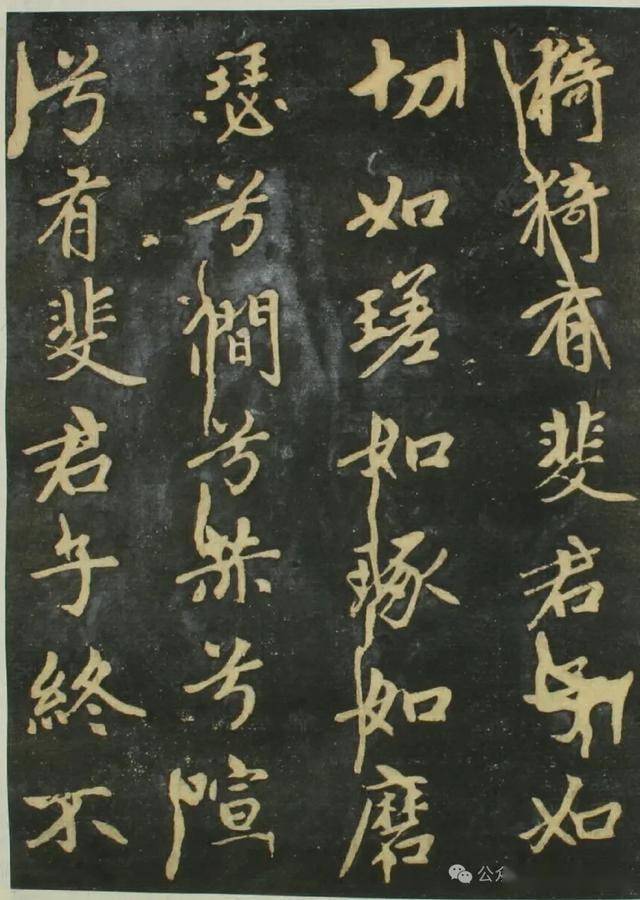 猗猗有斐君子如
切如瑳如琢如磨
瑟兮僴兮赫兮喧
兮有斐君子終不
公